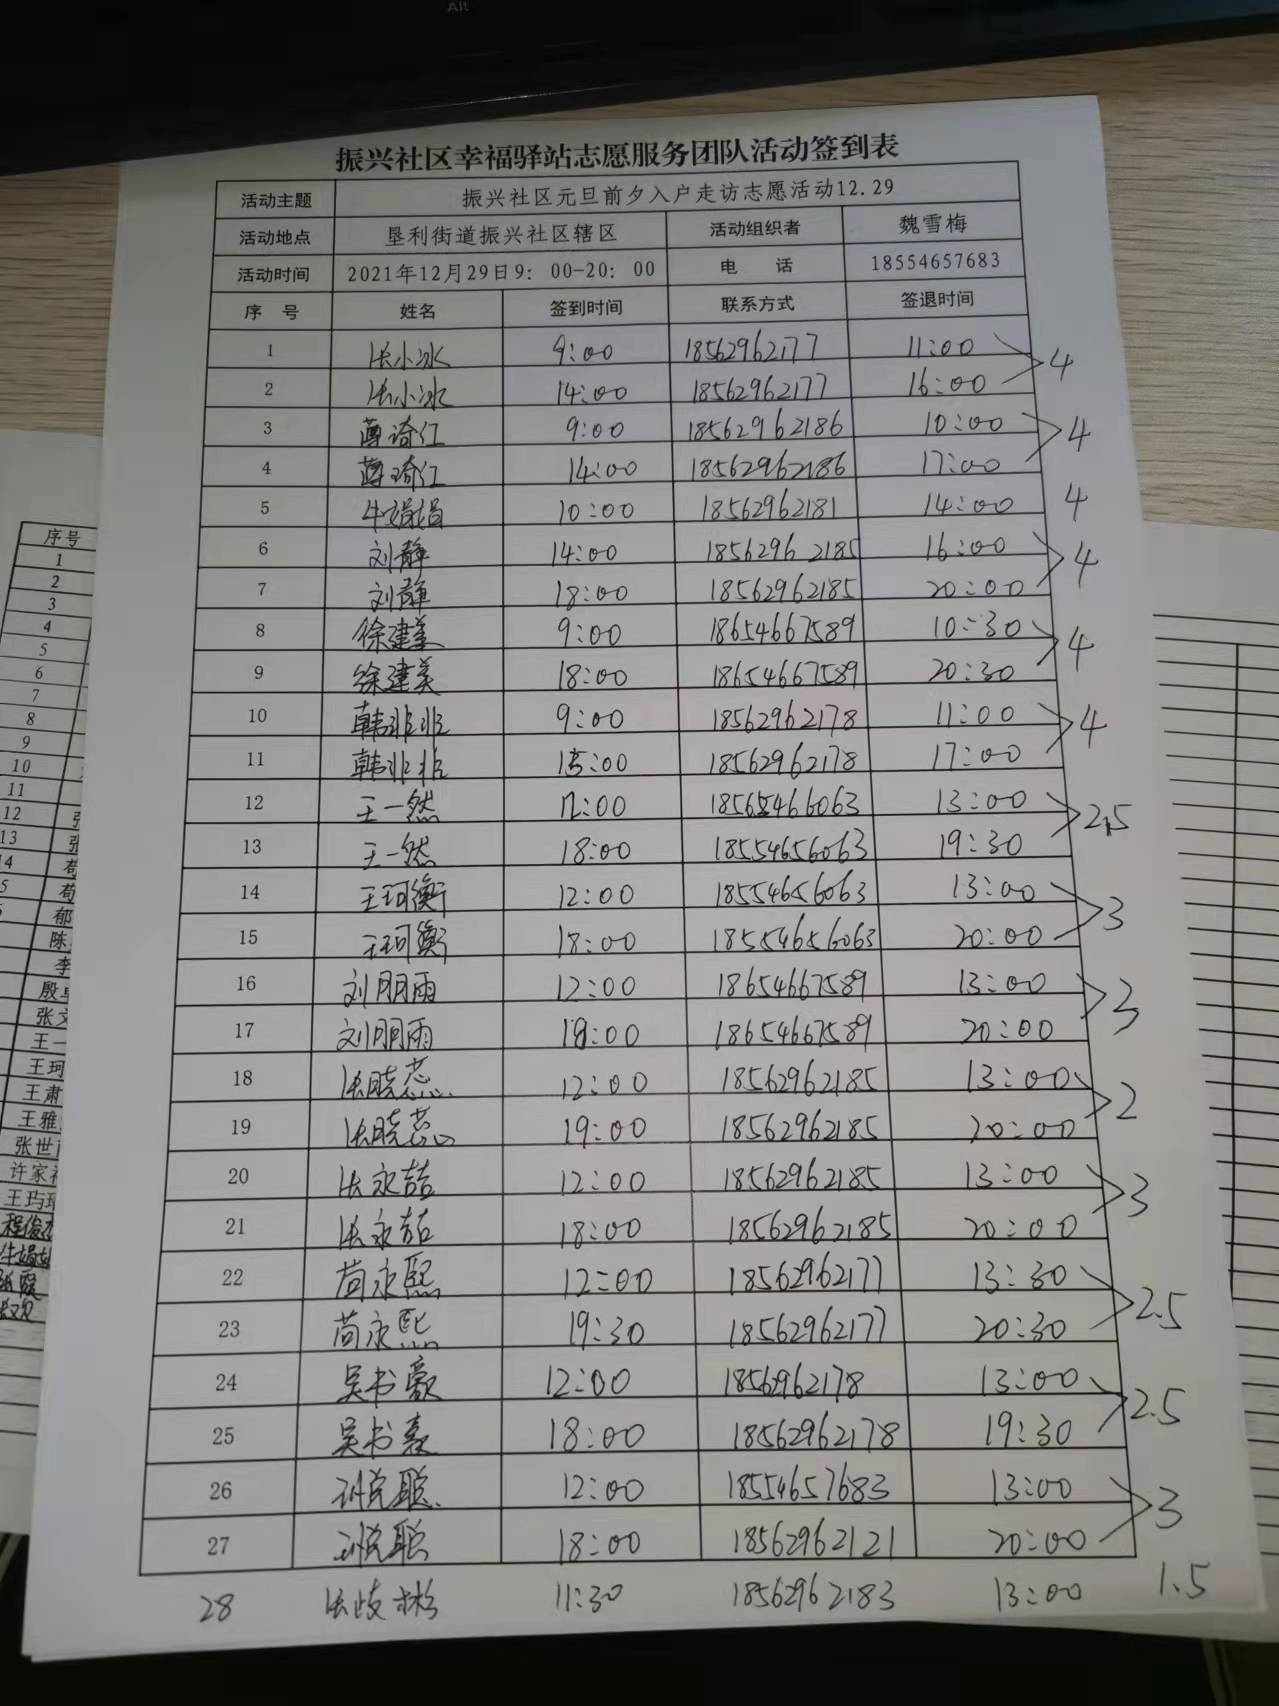 Alt
振兴社区幸福驿站志愿服务团队活动签到表
活动主题 振兴社区元旦前夕入户走访志愿活动12.29
活动地点 垦利街道振兴社区辖区 活动组织者 魏雪梅
活动时间 2021年12月29日9：00-20：00 电 话 18554657683
序 号 姓名 签到时间 联系方式 签退时间
1 张小冰 9:00 18562962177 11:00 4
2 张小冰 14:00 18562962177 16:00
3 薄琦红 9:00 18562962186 10:00 4
4 薄琦红 14:00 18562962186 17:00
5 牛娟娟 10:00 18562962181 14:00 4
6 刘静 14:00 18562962185 16:00 4
7 刘静 18:00 18562962185 20:00
8 徐建美 9:00 18654667589 10:30 4
9 徐建美 18:00 18654667589 20:30
10 韩非非 9:00 18562962178 11:00 4
11 韩非非 15:00 18562962178 17:00
12 王一然 12:00 13:00 2.5
13 王一然 18:00 18554656063 19:30
14 王珂衡 12:00 18554656063 13:00 3
15 王珂衡 18:00 18554656063 20:00
16 刘朋雨 12:00 18654667589 13:00 3
17 刘朋雨 18:00 18654667589 20:00
18 张晓蕊 12:00 18562962185 13:00 2
19 张晓蕊 19:00 18562962185 20:00
20 张永喆 12:00 18562962185 13:00 3
21 张永喆 18:00 18562962185 20:00
22 苟永熙 12:00 18562962177 13:30 2.5
23 苟永熙 19:30 18562962177 20:30
24 吴书豪 12:00 1856962178 13:00 2.5
25 吴书豪 18:00 18562962178 19:30
26 聪 12:00 18554657683 13:00 3
27 聪 18:00 18562962121 20:00
28 张歧彬 11:30 18562962183 13:00 1.5
序号
1
2
3
4
5
6
7
8
9
10
11
12
13
郁
陈
李
殷
张文
王一
王珂
王肃
王雅
张世
许家